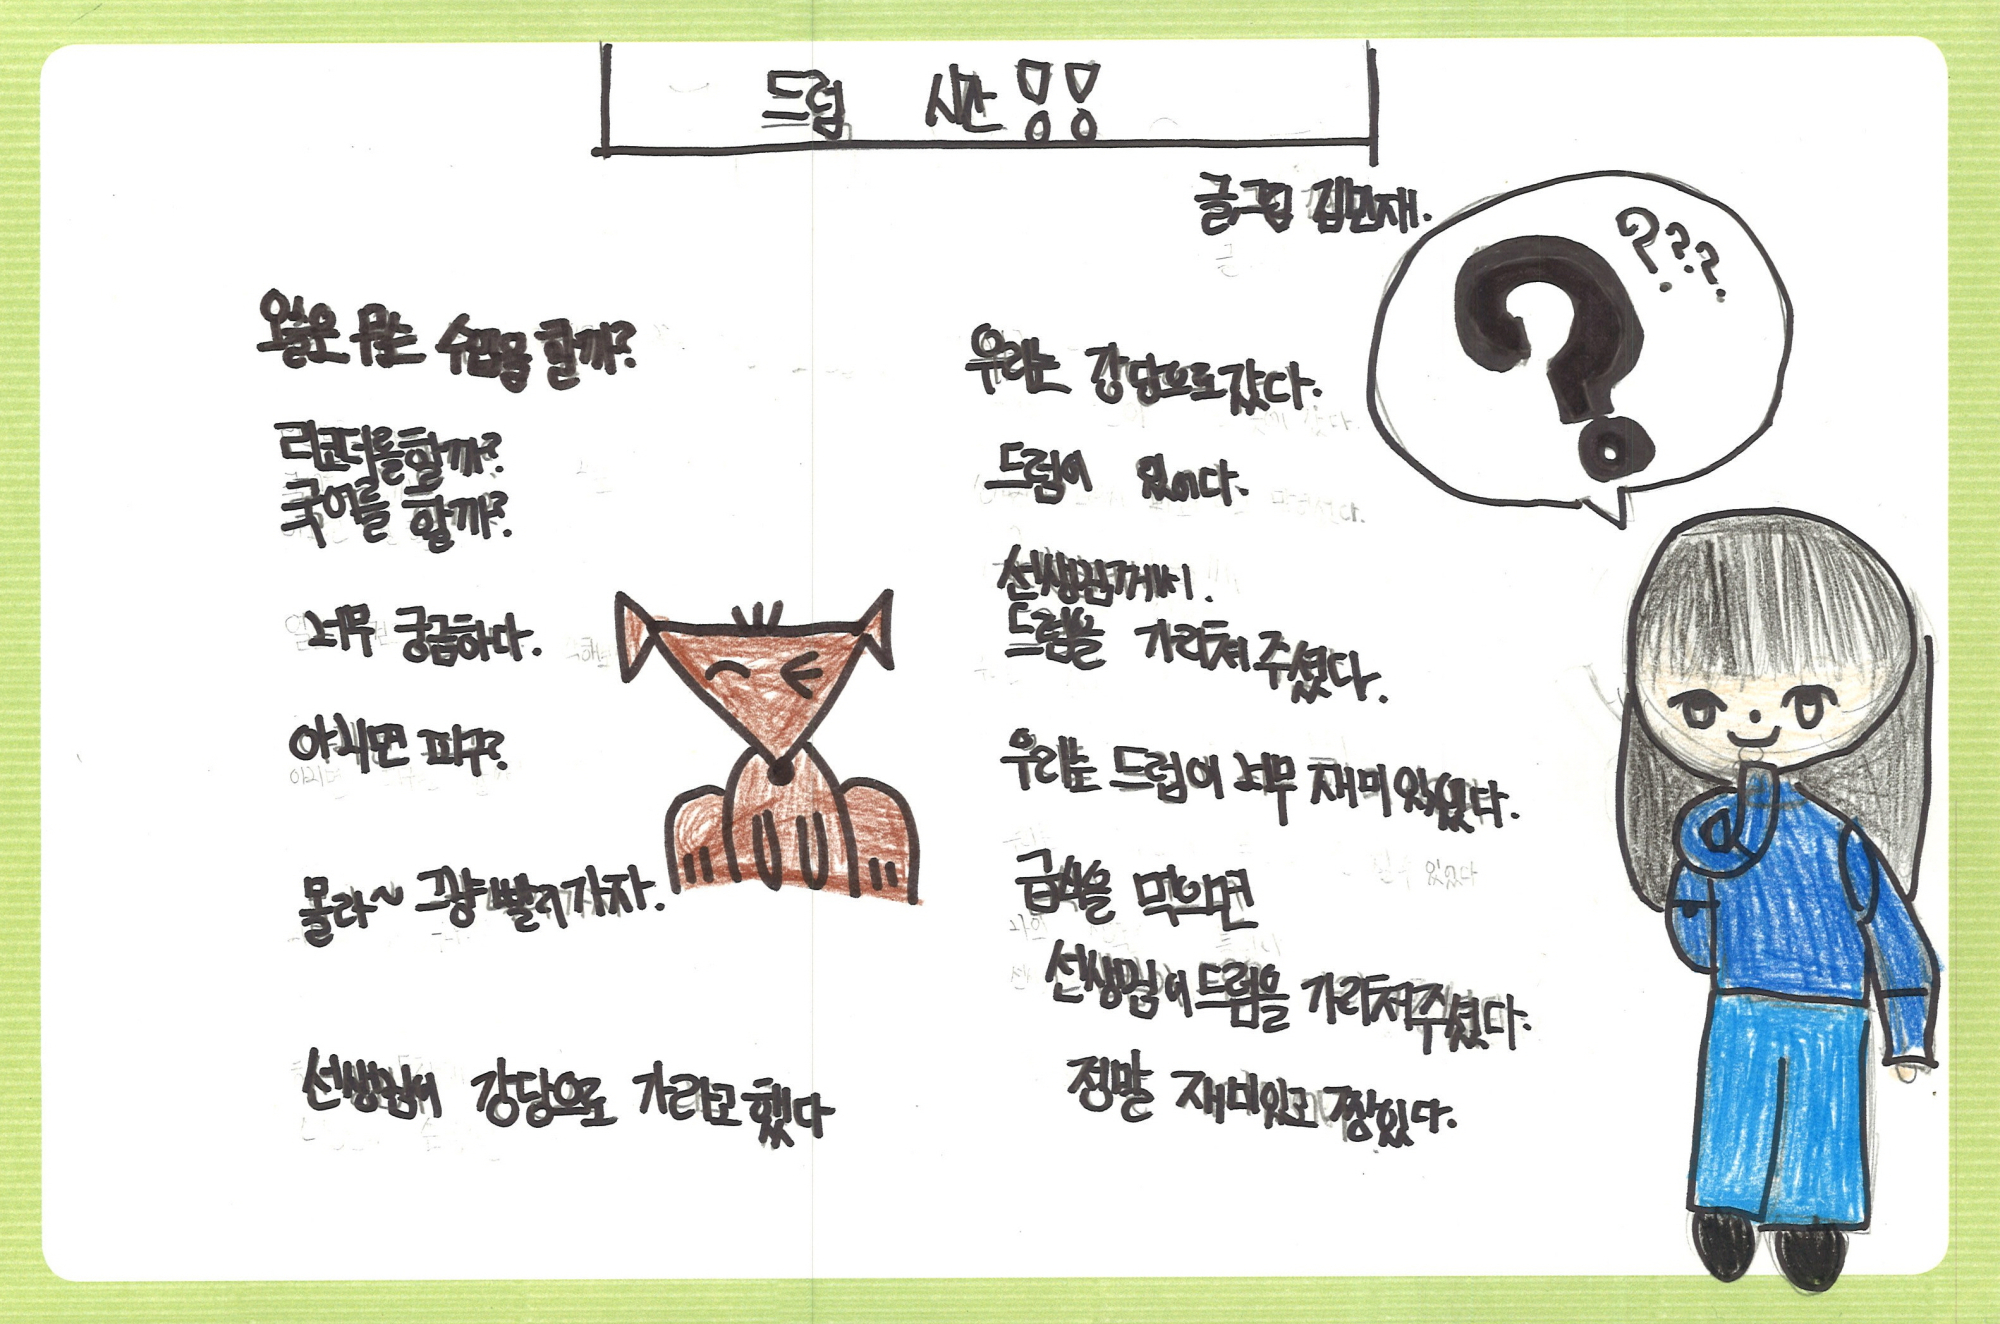 드럼 시간!!
글그림 김민재.
???
?
오늘은 무슨 수업을 할까?
리코더를 할까?
국어를 할까?
너무 궁금하다.
아니면 피구?
몰라~ 그냥 빨리 가자.
선생님이 강당으로 가라고 했다
우리는 강당으로 갔다.
드럼이 있었다.
선생님께서.
드럼을 가리쳐 주셨다.
우리는 드럼이 너무 재미있었다.
급식을 먹으면
선생님이 드럼을 가리쳐주셨다.
정말 재미있고 짱있다.